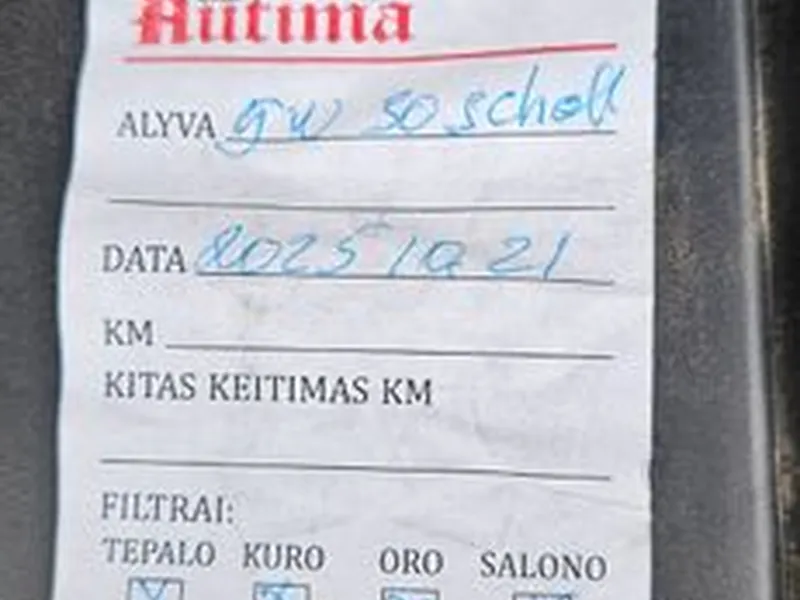 Autima
ALYVA 5W 50 scholl
DATA 2025 10 21
KM
KITAS KEITIMAS KM
FILTRAI:
TEPALO KURO ORO SALONO